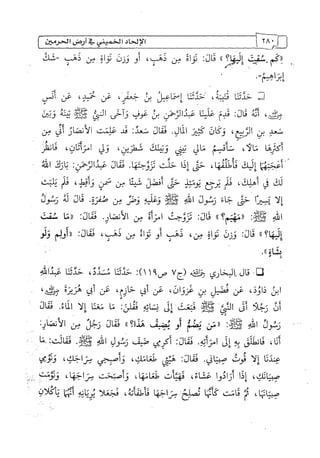 ٢٨٠ الإلحاد الخميني في أرض الحرمين
«كم سُقْتَ إليها؟» قال: نواة من ذهب، أو وزن نواة من ذهب -شكّ
إبراهيم-.
حدثنا قتيبة، حدثنا إسماعيل بن جعفر، عن حميد، عن أنس
رضي الله عنه، أنه قال: قدم علينا عبدالرحمن بن عوف وآخى النبي ﷺ بينه وبين
سعد بن الربيع، وكان كثير المال. فقال سعد: قد علمت الأنصار أني من
أكثرها مالًا، سأقسم مالي بيني وبينك شطرين، ولي امرأتان، فانظر
أعجبهما إليك فأطلقها، حتى إذا حلت تزوجتها. فقال عبدالرحمن: بارك الله
لك في أهلك، فلم يرجع يومئذٍ حتى أفضل شيئًا من سمن وأقط، فلم يلبث
إلا يسيرًا حتى جاء رسول الله ﷺ وعليه وضر من صفرة. فقال له رسول
الله ﷺ: «مَهْيَم؟» قال: تزوجت امرأة من الأنصار. فقال: «ما سقت
إليها؟» قال: وزن نواة من ذهب أو نواة من ذهب، فقال: «أولم ولو
بشاة».
قال البخاري رحمه الله (ج٧ ص١١٩): حدثنا مسدد، حدثنا عبدالله
ابن داود، عن فضيل بن غزوان، عن أبي حازم، عن أبي هريرة رضي الله عنه،
أن رجلًا أتى النبي ﷺ فبعث إلى نسائه فقلن: ما معنا إلا الماء. فقال
رسول الله ﷺ: «من يضم أو يضيف هذا؟» فقال رجل من الأنصار:
أنا، فانطلق به إلى امرأته. فقال: أكرمي ضيف رسول الله ﷺ. فقالت: ما
عندنا إلا قوت صبياني. فقال: هيئي طعامك، وأصبحي سراجك، ونومي
صبيانك، إذا أرادوا عشاء، فهيأت طعامها، وأصبحت سراجها، ونومت
صبيانها، ثم قامت كأنها تصلح سراجها فأطفأته، فجعلا يريانه أنهما يأكلان